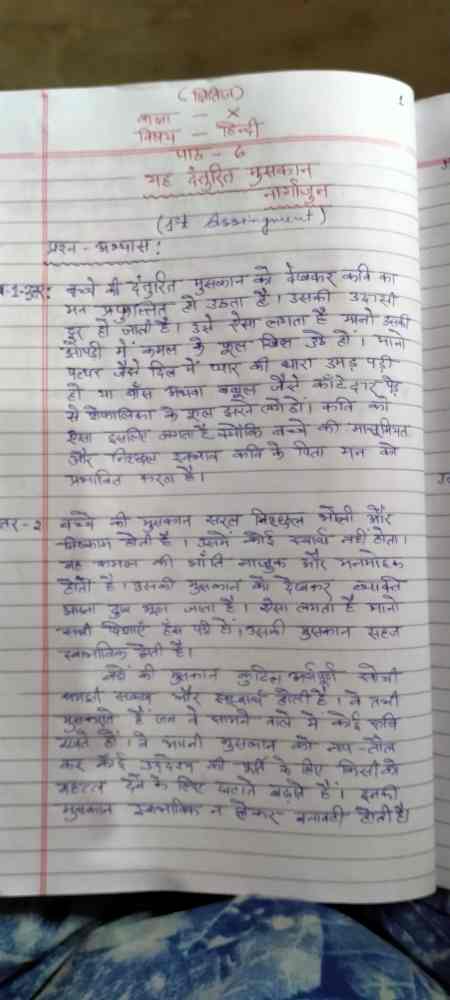 (क्षितिज)
1
कक्षा - X
विषय - हिन्दी
पाठ - 6
यह दंतुरित मुसकान
नागार्जुन
(1st Assignment)
प्रश्न - अभ्यास :
बच्चे की दंतुरित मुसकान को देखकर कवि का
मन प्रफुल्लित हो उठता है। उसकी उदासी
दूर हो जाती है। उसे ऐसा लगता है मानो उसकी
झोंपड़ी में कमल के फूल खिल उठे हों। मानो
पत्थर जैसे दिल में प्यार की धारा उमड़ पड़ी
हो या बाँस अथवा बबूल जैसे काँटेदार पेड़
से शेफालिका के फूल झरने लगे हों। कवि को
ऐसा इसलिए लगता है क्योंकि बच्चे की मासूमियत
और निश्छल स्वभाव कवि के पिता मन को
प्रभावित करता है।
तर-2 बच्चे की मुसकान सरल निश्छल भोली और
निष्काम होती है। उसमें कोई स्वार्थ नहीं होता।
वह कमल की भाँति नाजुक और मनमोहक
होती है। उसकी मुसकान को देखकर व्यक्ति
अपना दुख भूल जाता है। ऐसा लगता है मानो
सभी दिशाएँ हँस पड़ी हों। उसकी मुसकान सहज
स्वाभाविक होती है।
बड़ों की मुसकान कुटिल अर्थपूर्ण सोची
समझी सकाम और स्वार्थी होती है। वे तभी
मुसकराते हैं जब वे सामने वाले में कोई रुचि
रखते हों। वे अपनी मुसकान को नाप-तौल
कर कोई उद्देश्य की पूर्ति के लिए किसी को
महत्त्व देने के लिए घटाते बढ़ाते हैं। इनकी
मुसकान स्वाभाविक न होकर बनावटी होती है।